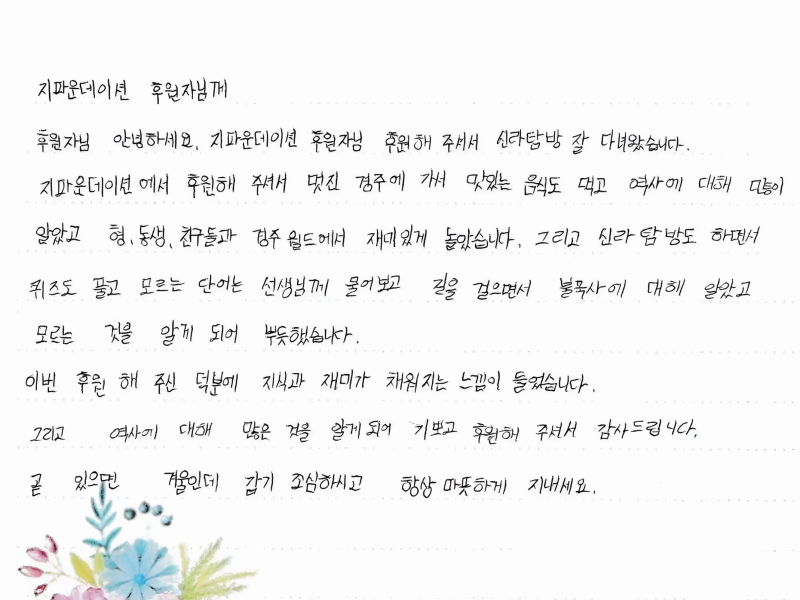 지파운데이션 후원자님께
후원자님 안녕하세요. 지파운데이션 후원자님 후원해 주셔서 신라탐방 잘 다녀왔습니다.
지파운데이션에서 후원해 주셔서 멋진 경주에 가서 맛있는 음식도 먹고 역사에 대해 많이
알았고 형, 동생, 친구들과 경주 월드에서 재미있게 놀았습니다. 그리고 신라 탐방도 하면서
퀴즈도 풀고 모르는 단어는 선생님께 물어보고 길을 걸으면서 불국사에 대해 알았고
모르는 것을 알게 되어 뿌듯했습니다.
이번 후원 해 주신 덕분에 지식과 재미가 채워지는 느낌이 들었습니다.
그리고 역사에 대해 많은 것을 알게 되어 기쁘고 후원해 주셔서 감사드립니다.
곧 있으면 겨울인데 감기 조심하시고 항상 따뜻하게 지내세요.